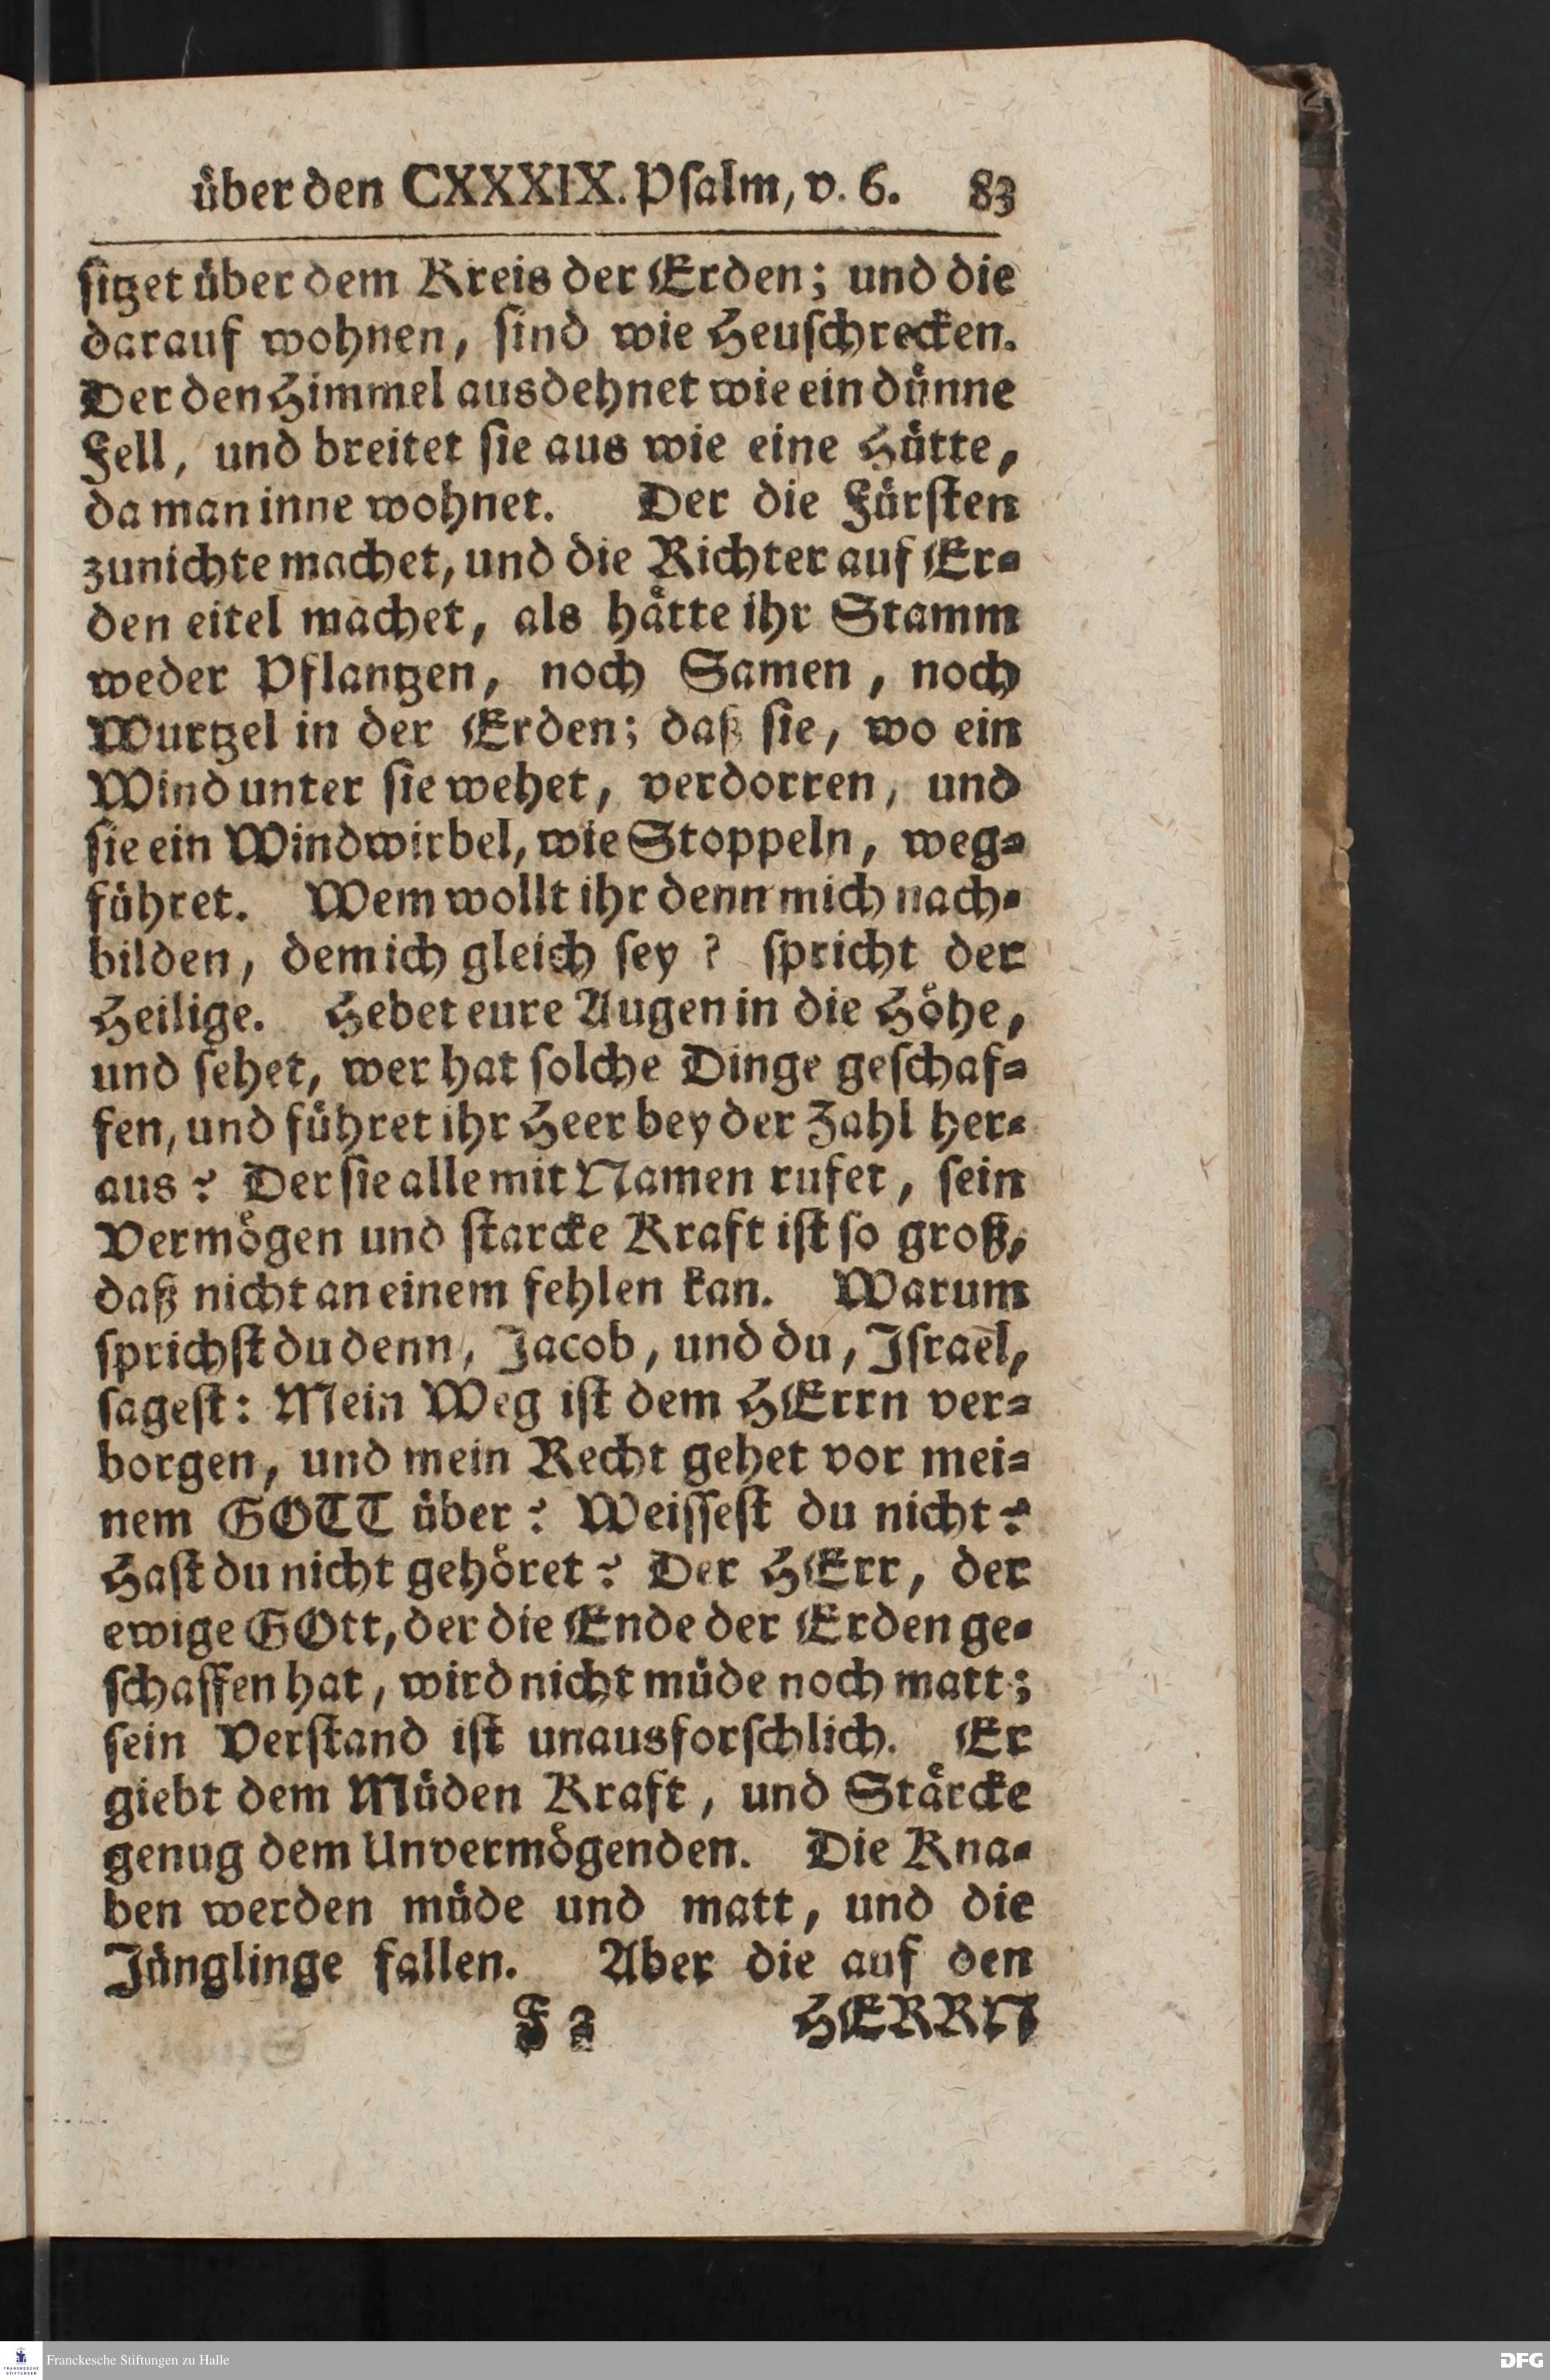 über den CXXXIX. Psalm, v. 6. 83
sitzet über dem Kreis der Erden; und die
darauf wohnen, sind wie Heuschrecken.
Der den Himmel ausdehnet wie ein dünne
Fell, und breitet sie aus wie eine Hütte,
da man inne wohnet. Der die Fürsten
zunichte machet, und die Richter auf Er-
den eitel machet, als hätte ihr Stamm
weder Pflantzen, noch Samen, noch
Wurtzel in der Erden; daß sie, wo ein
Wind unter sie wehet, verdorren, und
sie ein Windwirbel, wie Stoppeln, weg-
führet. Wem wollt ihr denn mich nach-
bilden, dem ich gleich sey? spricht der
Heilige. Hebet eure Augen in die Höhe,
und sehet, wer hat solche Dinge geschaf-
fen, und führet ihr Heer bey der Zahl her-
aus? Der sie alle mit Namen rufet, sein
Vermögen und starcke Kraft ist so groß,
daß nicht an einem fehlen kan. Warum
sprichst du denn, Jacob, und du, Israel,
sagest: Mein Weg ist dem HErrn ver-
borgen, und mein Recht gehet vor mei-
nem GOTT über? Weissest du nicht?
Hast du nicht gehöret? Der HErr, der
ewige GOtt, der die Ende der Erden ge-
schaffen hat, wird nicht müde noch matt;
sein Verstand ist unausforschlich. Er
giebt dem Müden Kraft, und Stärcke
genug dem Unvermögenden. Die Kna-
ben werden müde und matt, und die
Jünglinge fallen. Aber die auf den
F 2 HERRN
Franckesche Stiftungen zu Halle
DFG